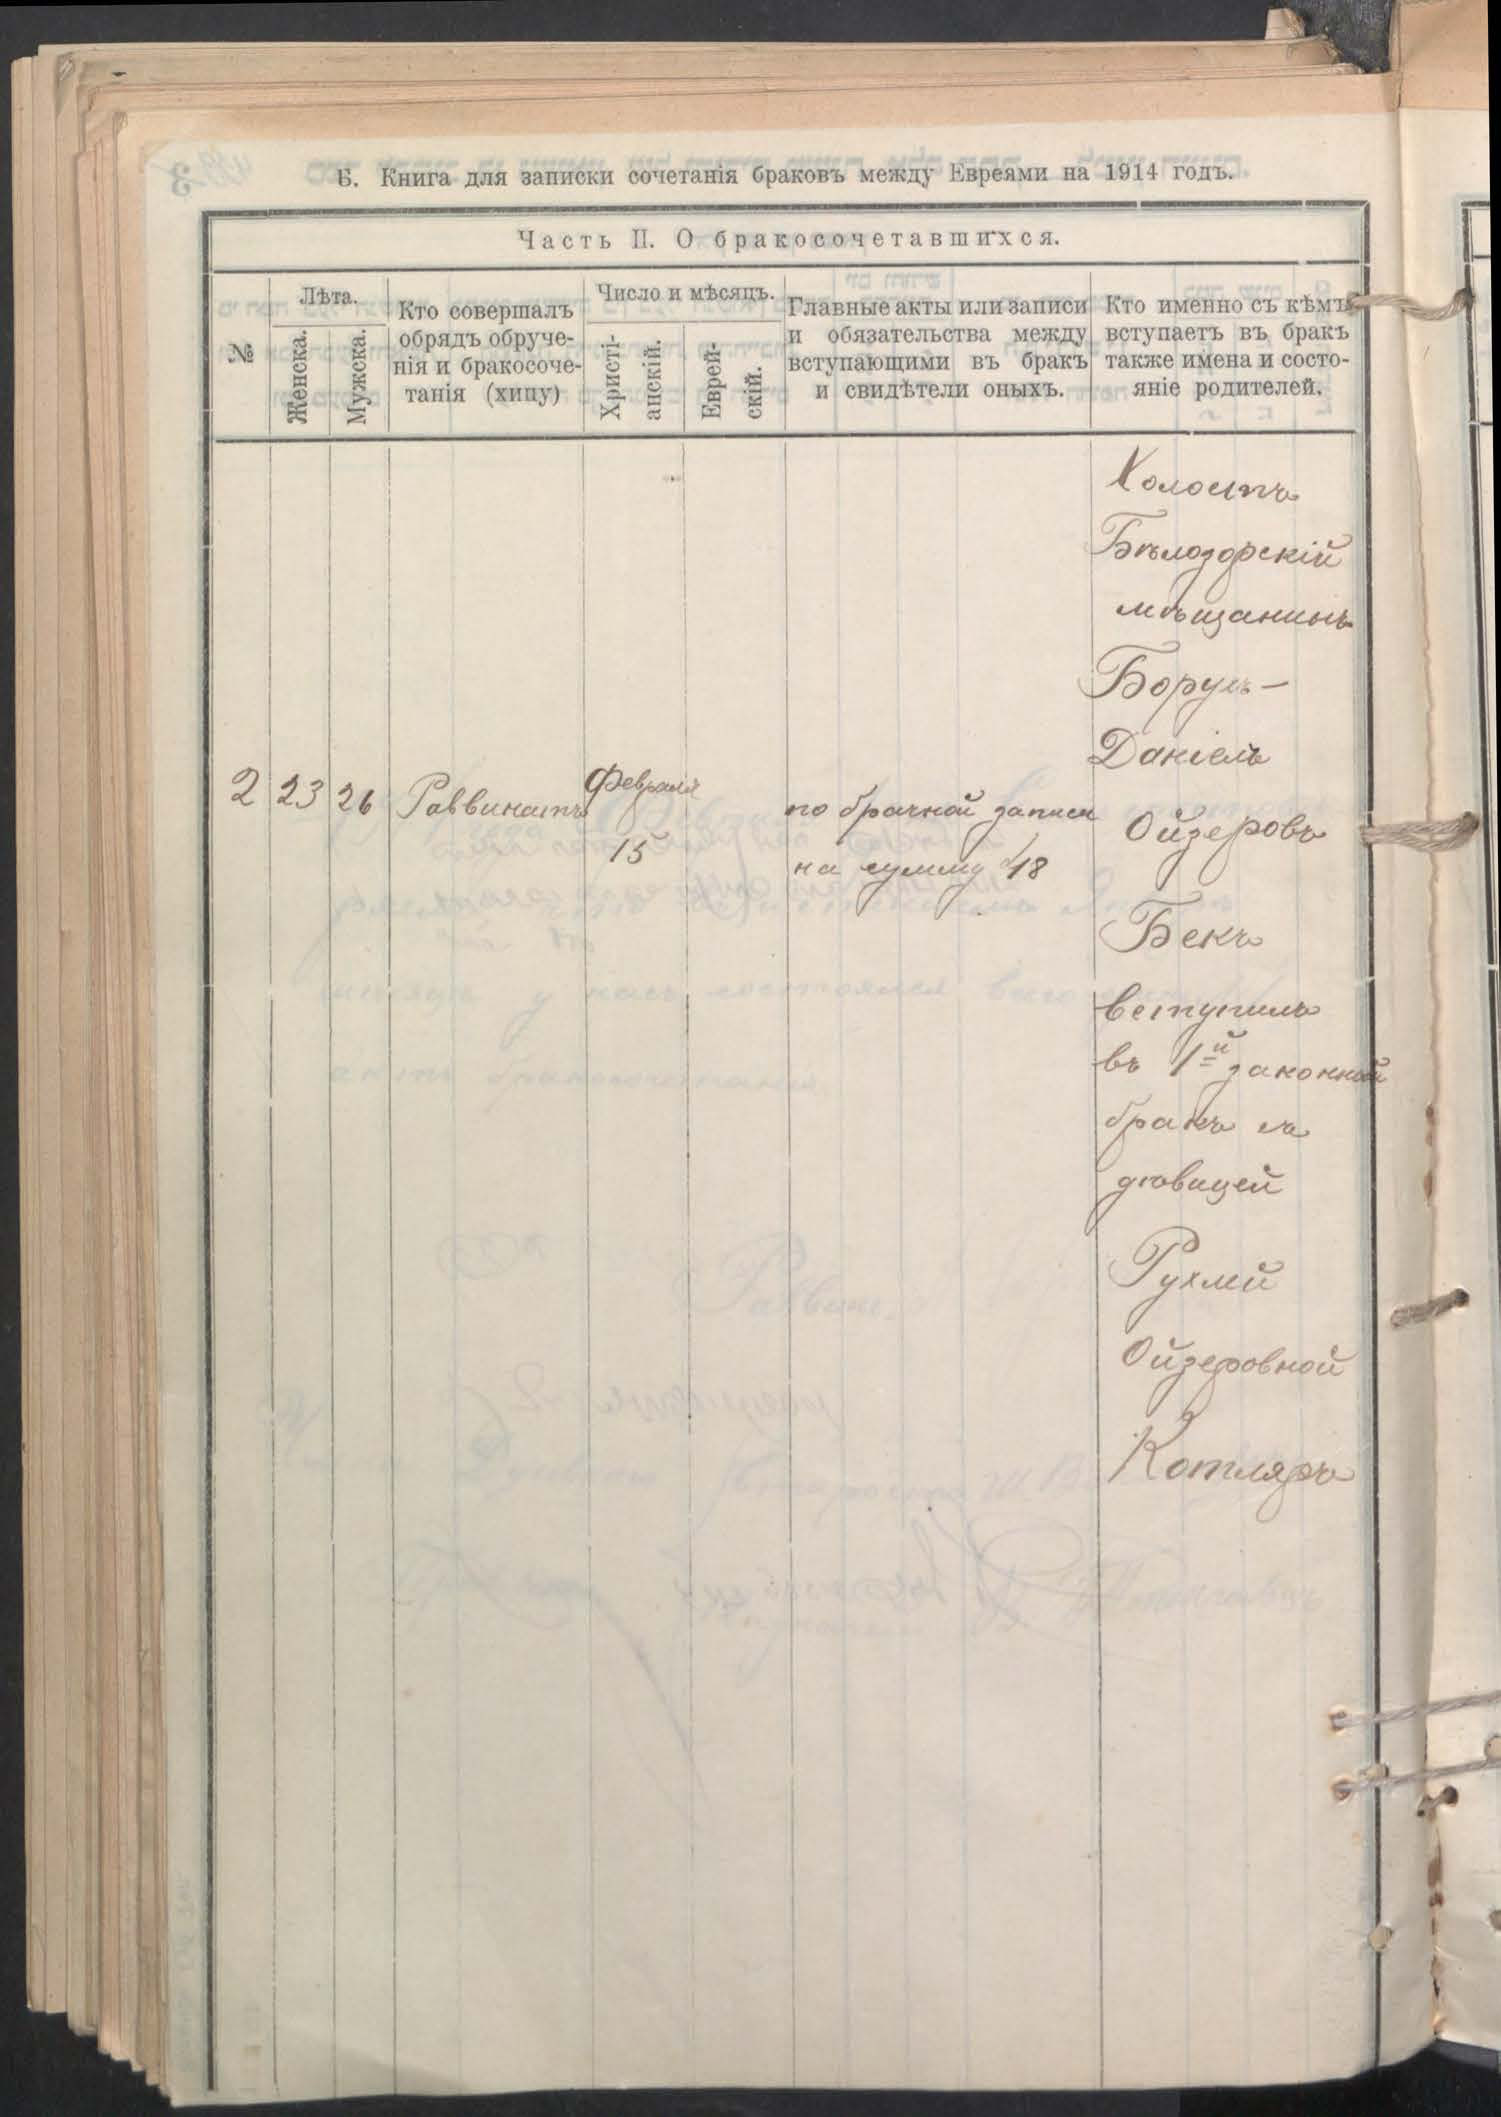 Б. Книга для записки сочетанія браковъ между Евреями на 1914 годъ.
Часть II. О бракосочетавшихся.
№
Лѣта.
Женска.
Мужска.
Кто совершалъ
обрядъ обруче-
нія и бракосоче-
танія (хипу)
Число и мѣсяцъ.
Христі-
анскій.
Еврей-
скій.
Главные акты или записи
и обязательства между
вступающими въ бракъ
и свидѣтели оныхъ.
Кто именно съ кѣмъ
вступаетъ въ бракъ
также имена и состо-
яніе родителей.
2
23
26
Раввинатъ
Февраля
15
по брачной записи
на сумму 48
Холостъ
Бѣлозорскій
мѣщанинъ
Борухъ-
Даніелъ
Ойзеровъ
Бекъ
вступилъ
въ 1-й законной
бракъ съ
дѣвицей
Рухлей
Ойзеровной
Котляръ